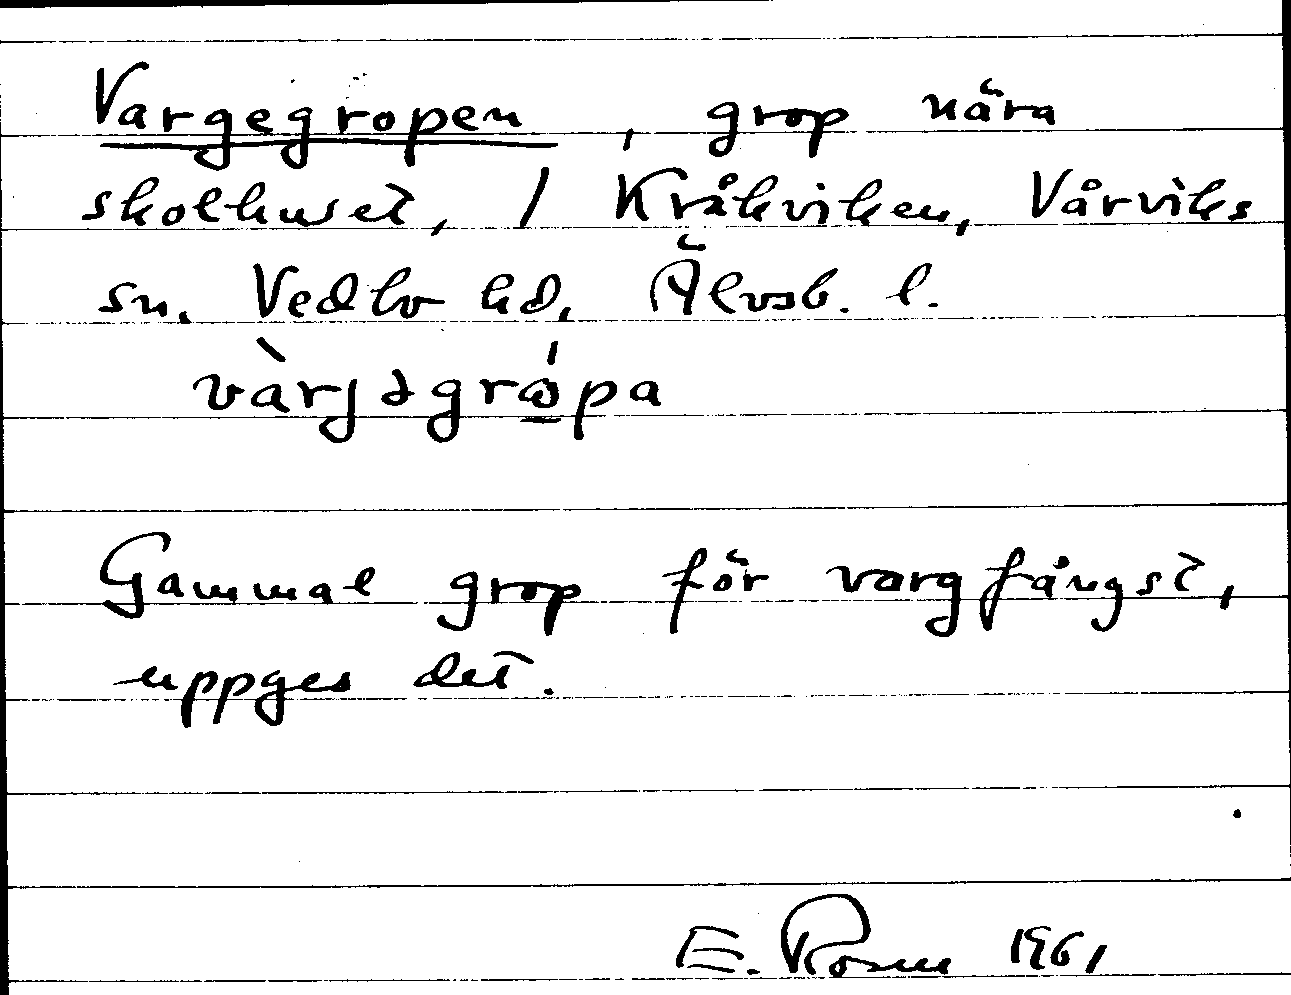 Vargegropen, grop nära
skolhuset, / Kråkviken, Vårviks
sn. Vedbo hd, Älvsb. l.
vàrjəgrǫ́pa
Gammal grop för vargfångst,
uppges det.
E. Rosen 1961